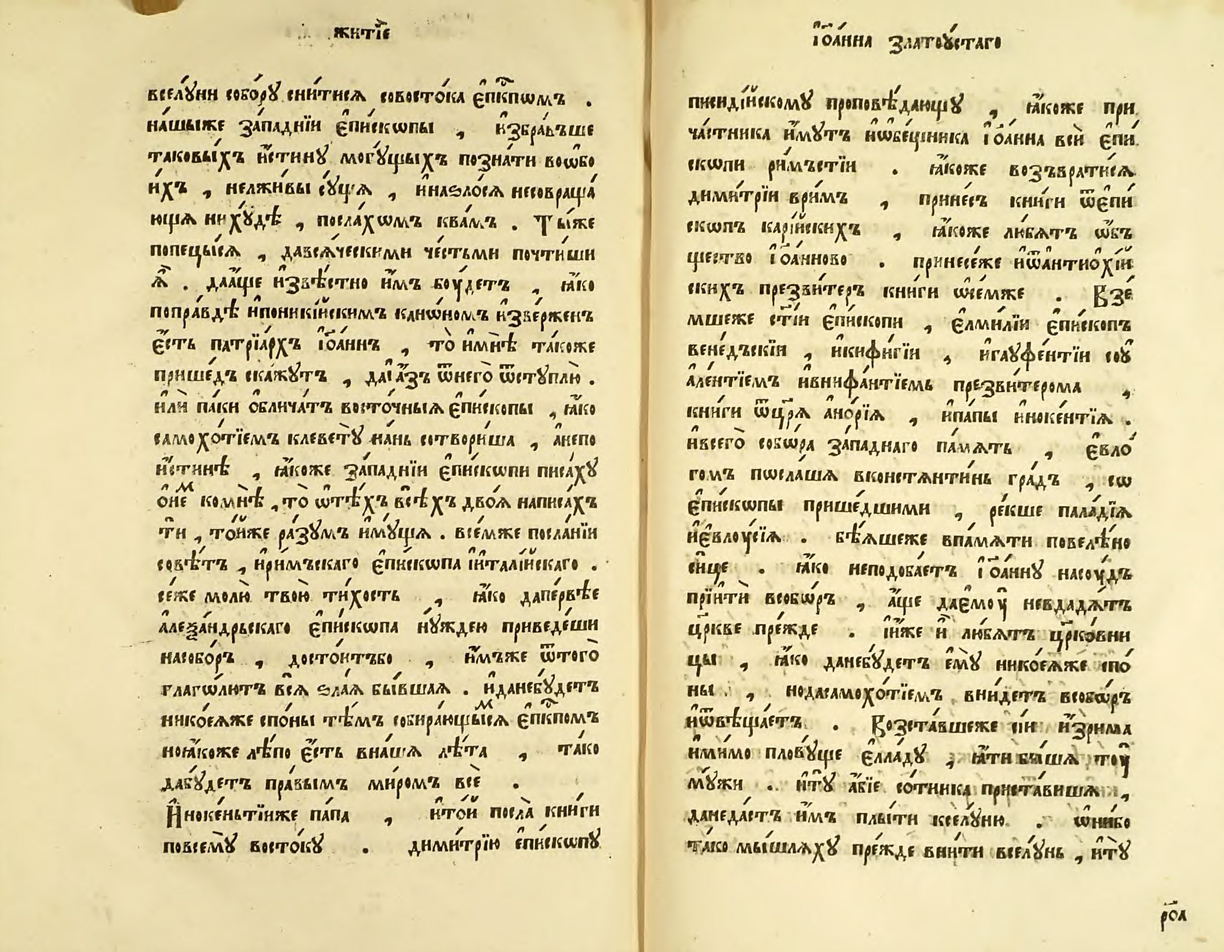 житїе
вселꙋни собо́рꙋ сни́тисѧ совосто́ка є҆пⷭ҇кпѡмъ .
на́шыже за́паднїи є҆пи́скѡпы , и҆збра́въше
таковы́хъ и҆́стинꙋ могꙋ́щыхъ позна́ти воѡ҆бо
и́хъ , нелжи́вы сꙋ́щѧ , инаѕло́сѧ несовраща́
ющѧ нихꙋ́дѣ , посла́хѡмъ ква́мъ . Ты́же
попецы́сѧ , давсѧ́ческими че́стьми почти́ши
ѧ҆̀ . даа́ще и҆звѣ́стно и҆̀мъ боу́детъ , ꙗ҆́ко
попра́вдѣ ипоники́искимъ канѡ́номъ и҆зве́рженъ
є҆́сть патрїа́рхъ і҆ѡа́ннъ , то̀ и҆мнѣ̀ та́коже
прише́дъ ска́жꙋтъ , даі҆а́зъ ѿнего̀ ѿстꙋплю̀ .
и҆лѝ па́ки ѡ҆блича́тъ восто́чныѧ є҆пи́скопы , ꙗ҆́ко
самохо́тїемъ клеветꙋ̀ на́нь сотвори́ша , анепо
и҆́стинѣ , ꙗ҆́коже за́паднїи є҆пи́скѡпи писа́хꙋ
ѻ҆неⷨ комнѣ̀ , то̀ ѿтѣ́хъ всѣ́хъ дво́ѧ написа́хъ
ти , то́йже ра́зꙋмъ и҆мꙋ́щѧ . все́мже посла́нїи
совѣ́тъ , и҆ри́мъскаго є҆пи́скѡпа і҆італі́искаго .
се́же молю̀ твою̀ ти́хость , ꙗ҆́ко дапе́рвѣе
а҆леѯа́ндрьскаго є҆пи́скѡпа нꙋ́ждею приведе́ши
насобо́ръ , досто́итъбо , и҆́мъже ѿтого̀
глаго́лютъ всѧ̀ ѕла́ѧ бы́вшаѧ . и҆данебꙋ́детъ
нико́еѧже спо́ны тѣ́мъ собира́ющыⷨсѧ є҆пⷭ҇кпомъ
ноꙗ҆́коже лѣ́по є҆́сть вна́шѧ лѣ́та , та́ко
дабꙋ́детъ пра́вымъ ми́ромъ всѐ .
И҆нокеньтїиже па́па , и҆то́й посла̀ кни́ги
повсемꙋ̀ восто́кꙋ . дими́трїю є҆пи́скѡпꙋ
і҆ѡа́нна златоꙋ́стаго
писиді́искомꙋ проповѣ́дающꙋ , ꙗ҆́коже при
ча́стника и҆́мꙋтъ и҆ѡ҆бе́щника і҆ѡа́нна всѝ є҆пи
скѡпи ри́мъстїи . ꙗ҆́коже возъврати́сѧ
дими́трїи ври́мъ , прине́съ кни́ги ѿє҆пи
скѡпъ карі́искихъ , ꙗ҆́коже лю́бѧтъ ѡ҆́бъ
щество і҆ѡа́нново . принесе́же и҆ѿантиохі́й
скихъ презви́теръ кни́ги ѡ҆се́мже . Взе́
мшеже ст҃і́и є҆пи́скопи , є҆лми́лїи є҆пи́скопъ
вене́дъскїи , и҆кифи́гїи , и҆гауфе́нтїи соу
але́нтїемъ и҆внифа́нтїемь презви́терома ,
кни́ги ѿцр҃ѧ̀ ано́рїѧ , и҆па́пы и҆ноке́нтїѧ .
и҆всего̀ собѡ́ра за́паднаго па́мѧть , є҆вло́
гомъ пѡсла́шѧ вконстѧнти́нь гра́дъ , сѡ
є҆пи́скѡпы прише́дшими , ре́кше пала́дїѧ
и҆є҆влоу́сїѧ . бѣ́ѧшеже впа́мѧти повелѣ́но
си́це . ꙗ҆́ко неподоба́етъ і҆ѡа́ннꙋ насоу́дъ
прїи́ти всобѡ́ръ , а҆́ще дає҆моу̀ невдадѧ́тъ
цр҃кве пре́жде . і҆́йже и҆̀ лю́бѧтъ цр҃ко́вни
цы , ꙗ҆́ко данебꙋ́детъ є҆мꙋ̀ нико́еѧже спо́
ны , нодасамохо́тїемъ вни́детъ всобѡ́ръ
и҆ѿвѣща́етъ . Возста́вшеже сі́и и҆зри́ма
и҆ми́мо пловꙋ́ще є҆лла́дꙋ , ꙗ҆́ти бы́шѧ тоу̀
мꙋ́жи . и҆тꙋ̀ а҆́бїе со́тника приста́вишѧ ,
данеда́стъ и҆̀мъ плы́ти кселꙋ́ню . ѡ҆ни́бо
та́ко мы́шлѧхꙋ пре́жде вни́ти вселꙋ́нь , и҆тꙋ̀
р҃оа